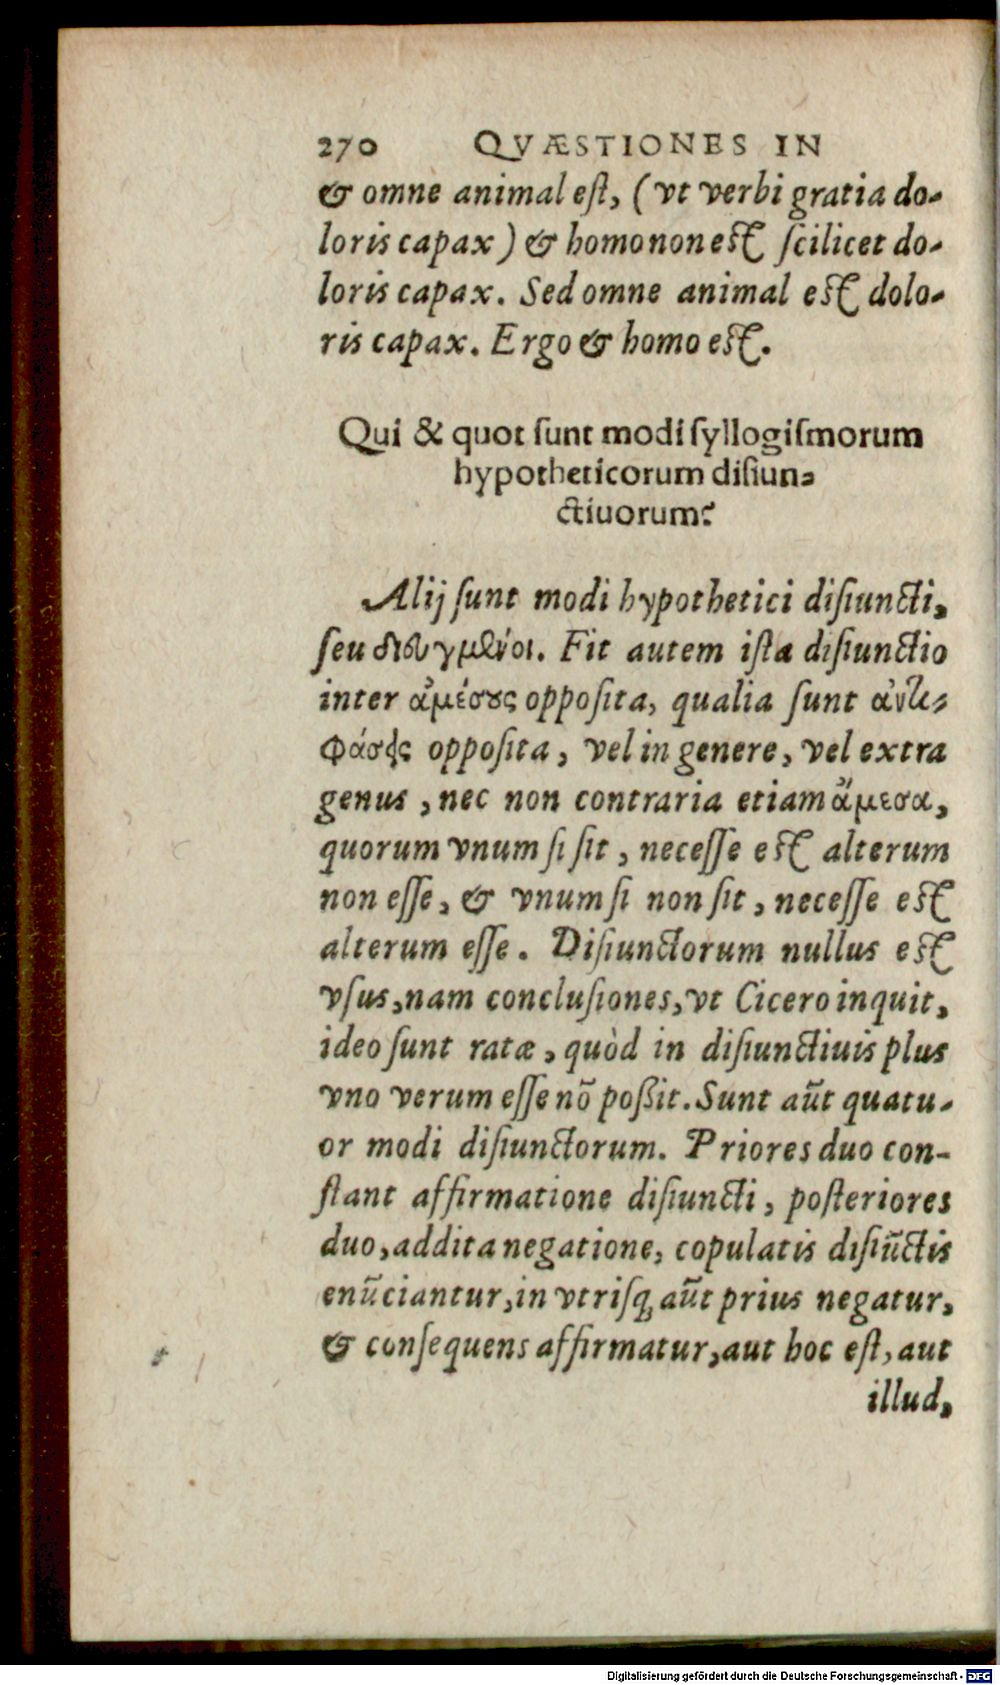 270 QVÆSTIONES IN
& omne animal eſt, (vt verbi gratia do-
loris capax) & homo non eſt ſcilicet do-
loris capax. Sed omne animal eſt dolo-
ris capax. Ergo & homo eſt.
Qui & quot ſunt modi ſyllogiſmorum
hypotheticorum diſiun-
ctiuorum?
Alij ſunt modi hypothetici diſiuncti,
ſeu . Fit autem iſta diſiunctio
inter ἀμέσους oppoſita, qualia ſunt ἀντι-
φάσεις oppoſita, vel in genere, vel extra
genus, nec non contraria etiam ἄμεσα,
quorum vnum ſi ſit, neceſſe eſt alterum
non eſſe, & vnum ſi non ſit, neceſſe eſt
alterum eſſe. Diſiunctorum nullus eſt
vſus, nam concluſiones, vt Cicero inquit,
ideo ſunt ratæ, quòd in diſiunctiuis plus
vno verum eſſe nõ poßit. Sunt aũt quatu-
or modi diſiunctorum. Priores duo con-
ſtant affirmatione diſiuncti, poſteriores
duo, addita negatione, copulatis diſiũctis
enũciantur, in vtriſq; aũt prius negatur,
& conſequens affirmatur, aut hoc eſt, aut
illud,
Digitalisierung gefördert durch die Deutsche Forschungsgemeinschaft - DFG